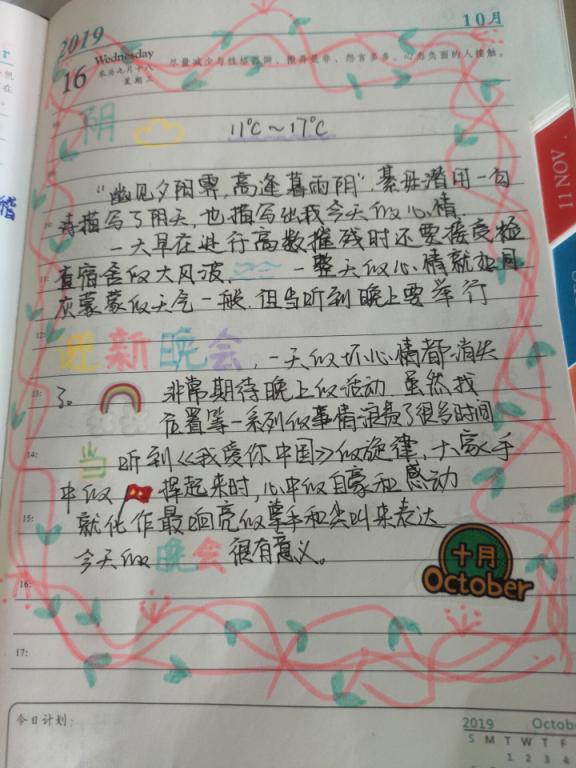 2019
10月
16
Wednesday
农历九月十八
星期三
尽量减少与性格孤僻、搬弄是非、怨言多多、心态负面的人接触。
阴
11℃~17℃
“幽见夕阳霁,高逢暮雨阴”.綦毋潜用一句
诗描写了阴天,也描写出我今天的心情.
一大早在进行高数摧残时还要接受
查宿舍的大风波. 一整天的心情就如同
灰蒙蒙的天气一般.但当听到晚上要举行
迎新晚会,一天的坏心情都消失
了. 非常期待晚上的活动 虽然找
位置等一系列的事情浪费了很多时间
当 听到《我爱你中国》的旋律,大家手
中的 挥起来时,心中的自豪和感动
就化作最响亮的掌声和尖叫来表达
今天的 晚会 很有意义。
十月
October
12:
13:
14:
15:
16:
17:
今日计划:
2019 Octobe
S M T W T F
1 2 3 4
11 NOV.